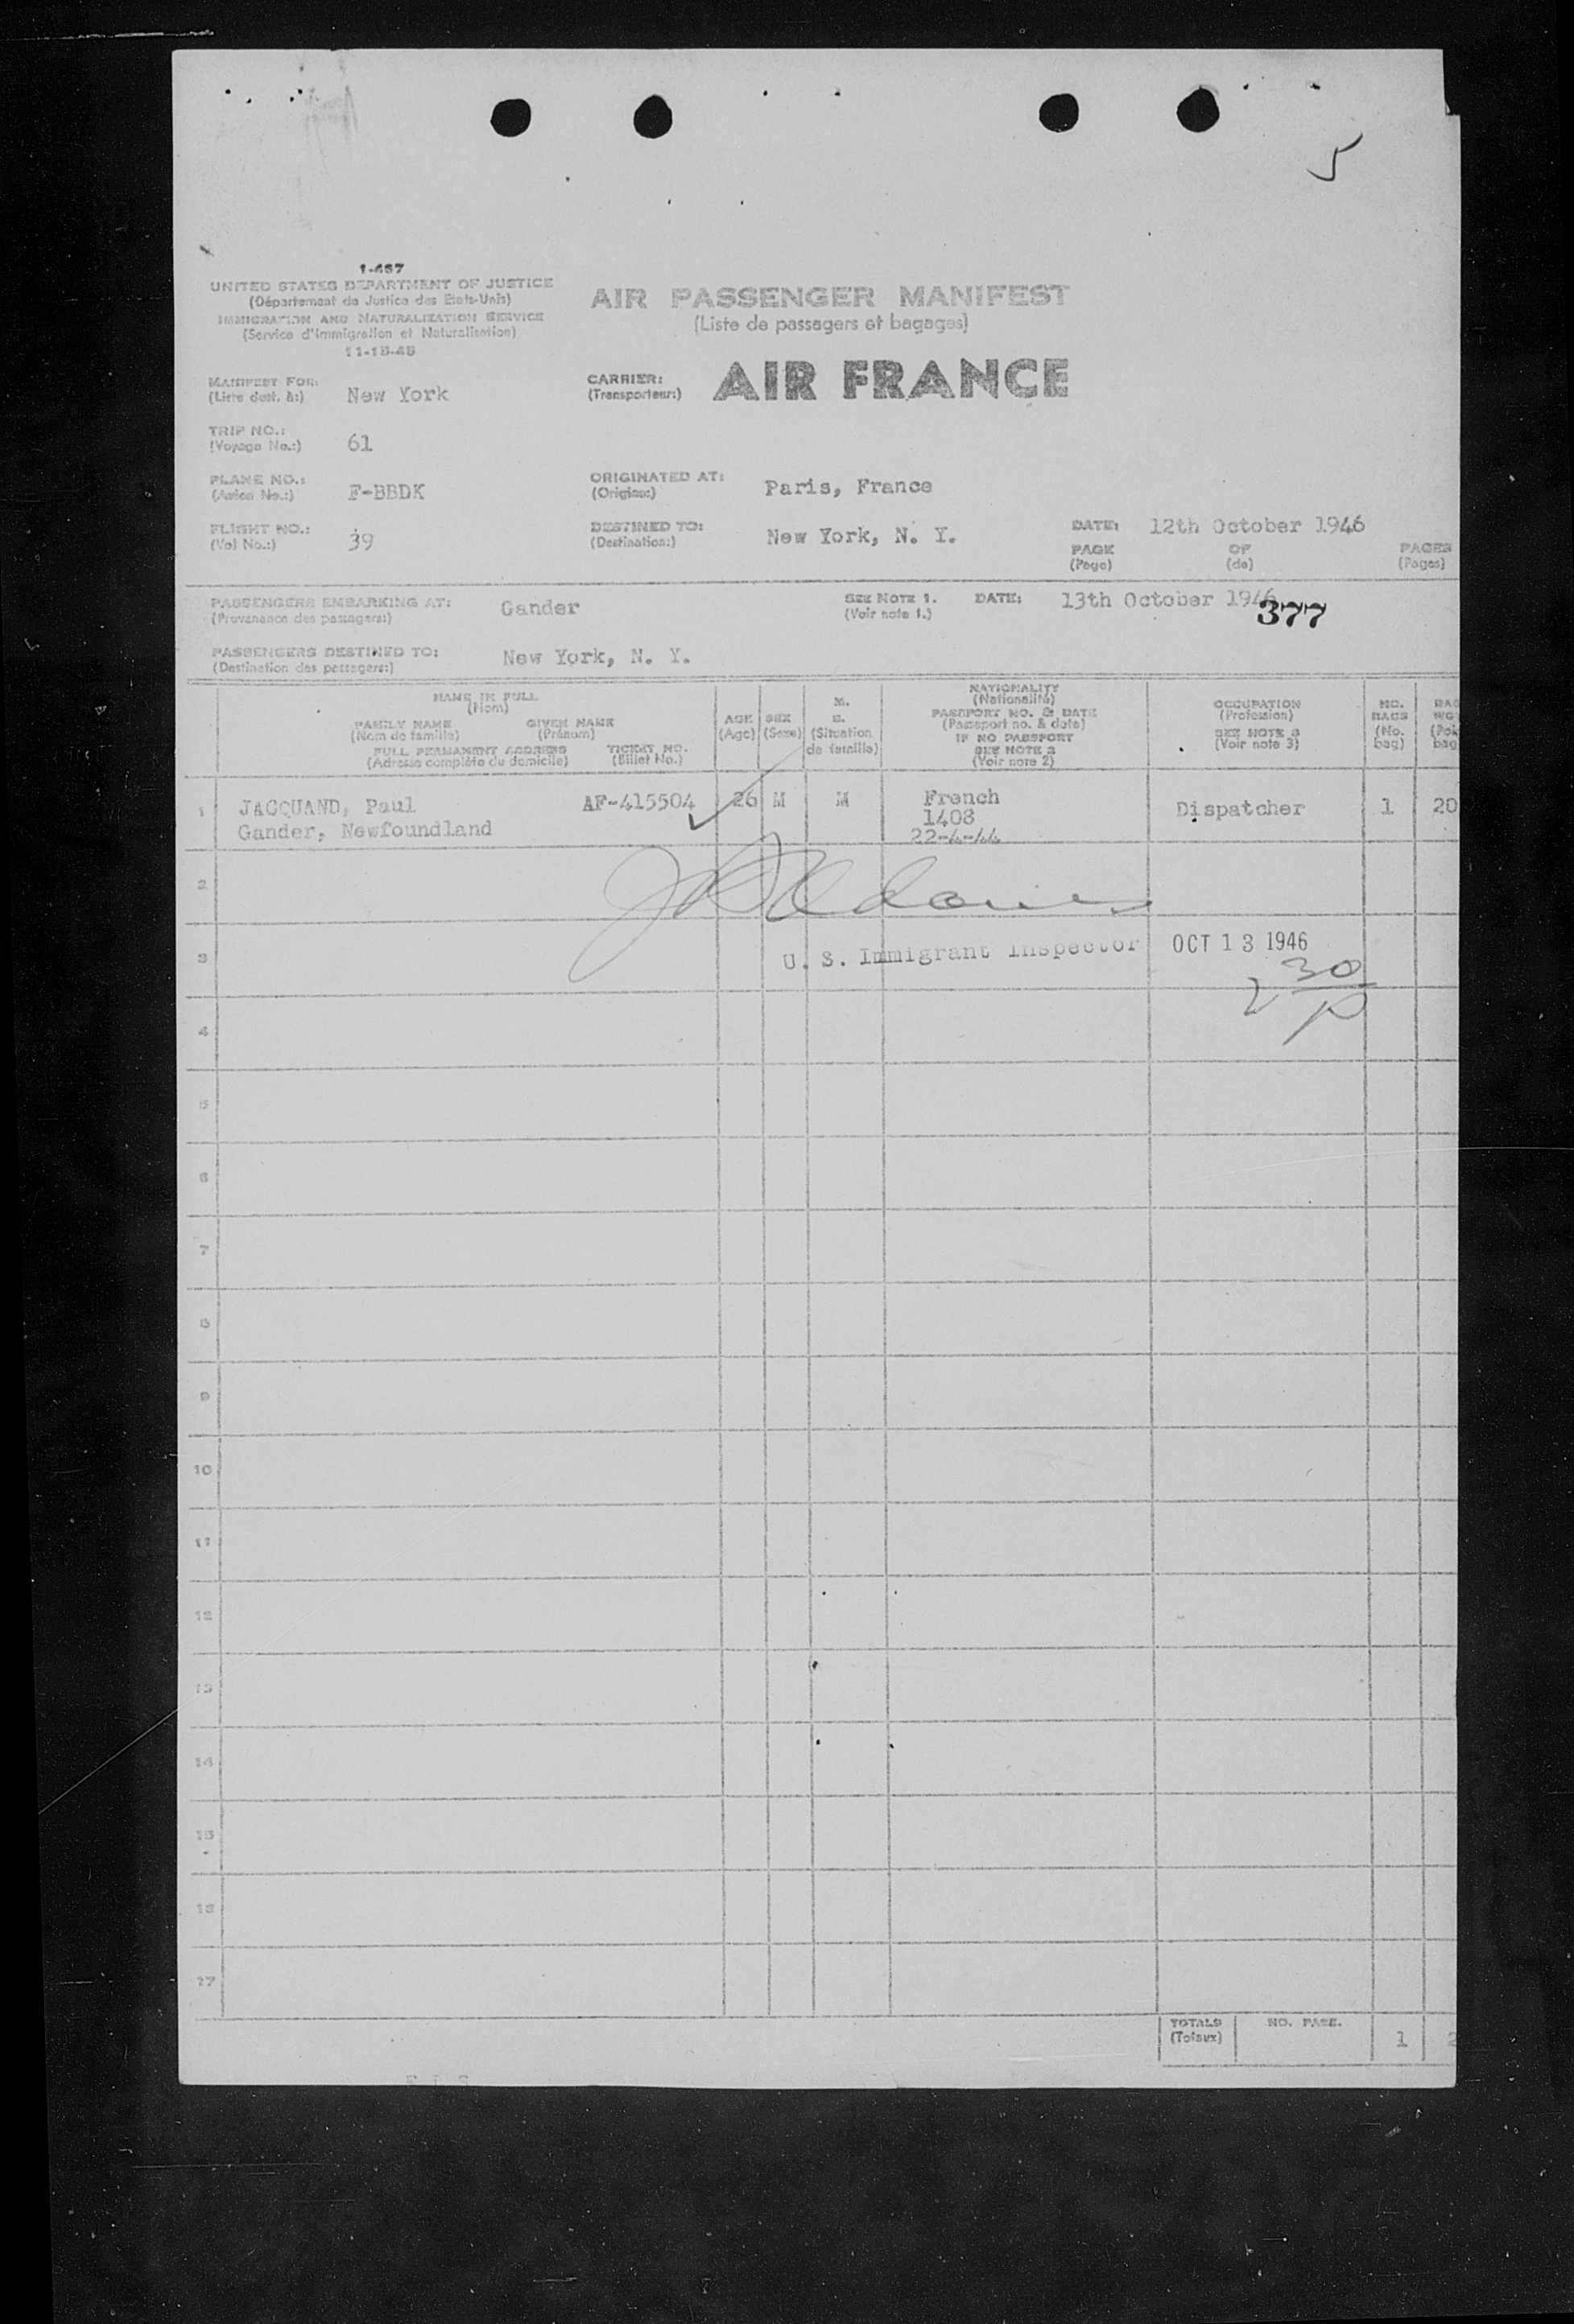 5
1-467
UNITED STATES DEPARTMENT OF JUSTICE
(Département de Justice des Etats-Unis)
IMMIGRATION AND NATURALIZATION SERVICE
(Service d'Immigration et Naturalisation)
11-15-45
AIR PASSENGER MANIFEST
(Liste de passagers et bagages)
MANIFEST FOR: New York
(Liste dest. à:)
CARRIER: AIR FRANCE
(Transporteur:)
TRIP NO.: 61
(Voyage No.:)
PLANE NO.: F-BBDK
(Avion No.:)
ORIGINATED AT: Paris, France
(Origine:)
FLIGHT NO.: 39
(Vol No.:)
DESTINED TO: New York, N. Y.
(Destination:)
DATE: 12th October 1946
PAGE OF PAGES
(Page) (de) (Pages)
PASSENGERS EMBARKING AT: Gander
(Provenance des passagers:)
SEE NOTE 1. DATE: 13th October 1946
(Voir note 1.)
377
PASSENGERS DESTINED TO: New York, N. Y.
(Destination des passagers:)
NAME IN FULL
(Nom)
FAMILY NAME GIVEN NAME
(Nom de famille) (Prénom)
FULL PERMANENT ADDRESS TICKET NO.
(Adresse complète du domicile) (Billet No.)
AGE
(Age)
SEX
(Sexe)
M.
S.
(Situation
de famille)
NATIONALITY
(Nationalité)
PASSPORT NO. & DATE
(Passeport no. & date)
IF NO PASSPORT
SEE NOTE 2
(Voir note 2)
OCCUPATION
(Profession)
SEE NOTE 3
(Voir note 3)
NO.
BAGS
(No.
bag)
BAG
WG
(Poi
bag
1 JACQUAND, Paul AF-415504 26 M M French Dispatcher 1 20
Gander, Newfoundland 1408
22-4-44
2
3 U. S. Immigrant Inspector OCT 13 1946
2 30
P
4
5
6
7
8
9
10
11
12
13
14
15
16
17
TOTALS NO. PASS. 1 2
(Totaux)